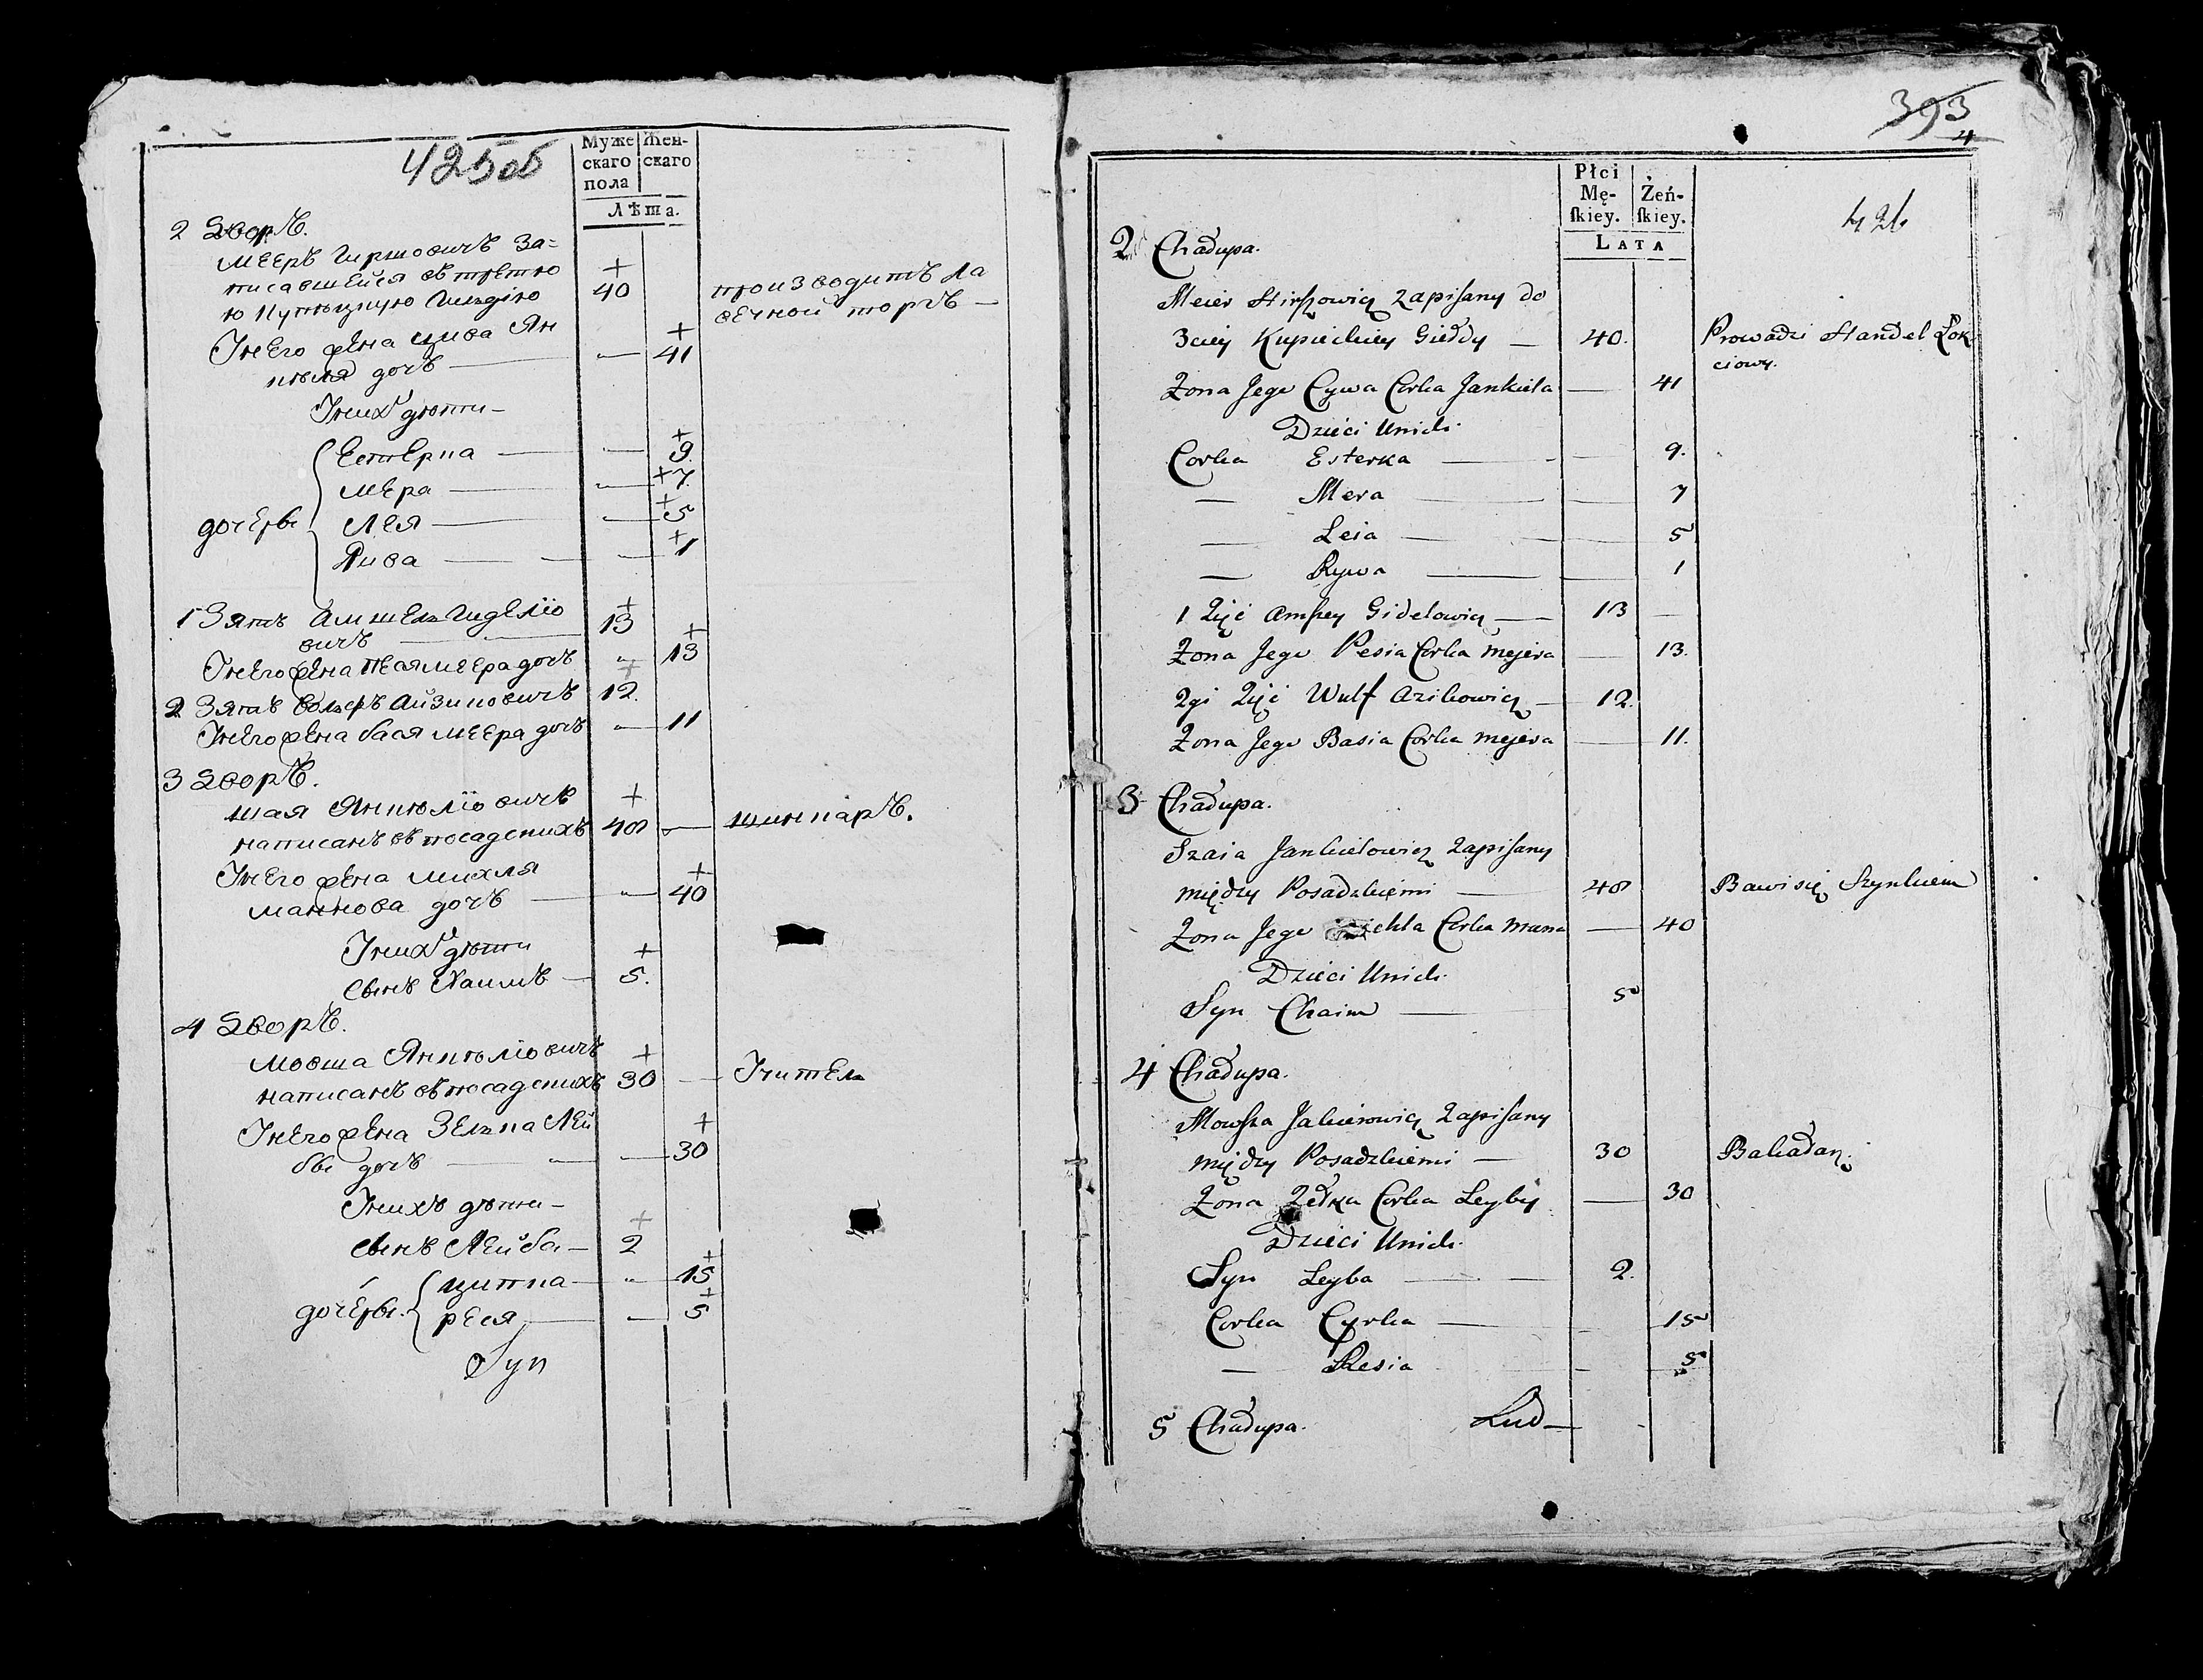 425 об
Муже
скаго
пола
Жен-
скаго
Лѣта.
2 Дворъ.
Мееръ Гиршовичъ За=
писавшейся въ третю
ю Купецкую Гилдію
+
40
производитъ ла
вечной торгъ —
У него жена Цива Ян
кѣля дочъ — 
+
41
У нихъ дѣти —
дочеръ
Естерка — +9.
Мера — +7.
Лея — +5
Рива — +1
1 Зять Амшель Гиделіо
вичъ — +
13
У него жена Песя Меера дочъ +
13
2 Зять Вольфъ Айзиковичъ 12.
У него жена Бася Меера дочъ — 11
3 Дворъ.
Шая Янкѣліовичъ +
написанъ въ посадскихъ 48 — шинкаръ.
У него жена Михля
Манкова дочъ — +
40
У нихъ дѣти
сынъ Хаимъ — +
5.
4 Дворъ.
Мовша Янкѣліовичъ +
написанъ въ посадскихъ 30 — Учитель
У него жена Зелька Лей
бы дочъ — +
30
У нихъ дѣти —
сынъ Лейба — +
2
дочеръ.
Ципка — +
15
Реся — +
5
Syn
393
4
Płci
Mę-
skiey.
Żeń-
skiey.
LATA
426
2 Chałupa.
Meier Hirszowicz zapisany do
3ciey Kupieckiey Giełdy — 40. Prowadzi Handel Łok
ciowy.
Zona Jego Cywa Corka Jankiela — 41
Dzieci Unich.
Corka Esterka — 9.
— Mera — 7
— Leia — 5
— Rywa — 1
1 Zięć Amszey Gidelowicz — 13 —
Zona Jego Pesia Corka Mejera — 13.
2gi Zięć Wulf Azikowicz — 12.
Zona Jego Basia Corka Mejera — 11.
3 Chałupa.
Szaia Jankielowicz zapisany
między Posadzkiemi — 48 Bawi się Szynkiem
Zona Jego Michla Corka Mana — 40
Dzieci Unich.
Syn Chaim — 5
4 Chałupa.
Mowsza Jakierowicz zapisany
między Posadzkiemi — 30 Bakałarz.
Zona Zełka Corka Leyby — 30
Dzieci Unich.
Syn Leyba — 2.
Corka Cypka — 15
— Resia — 5
5 Chałupa. Lud —